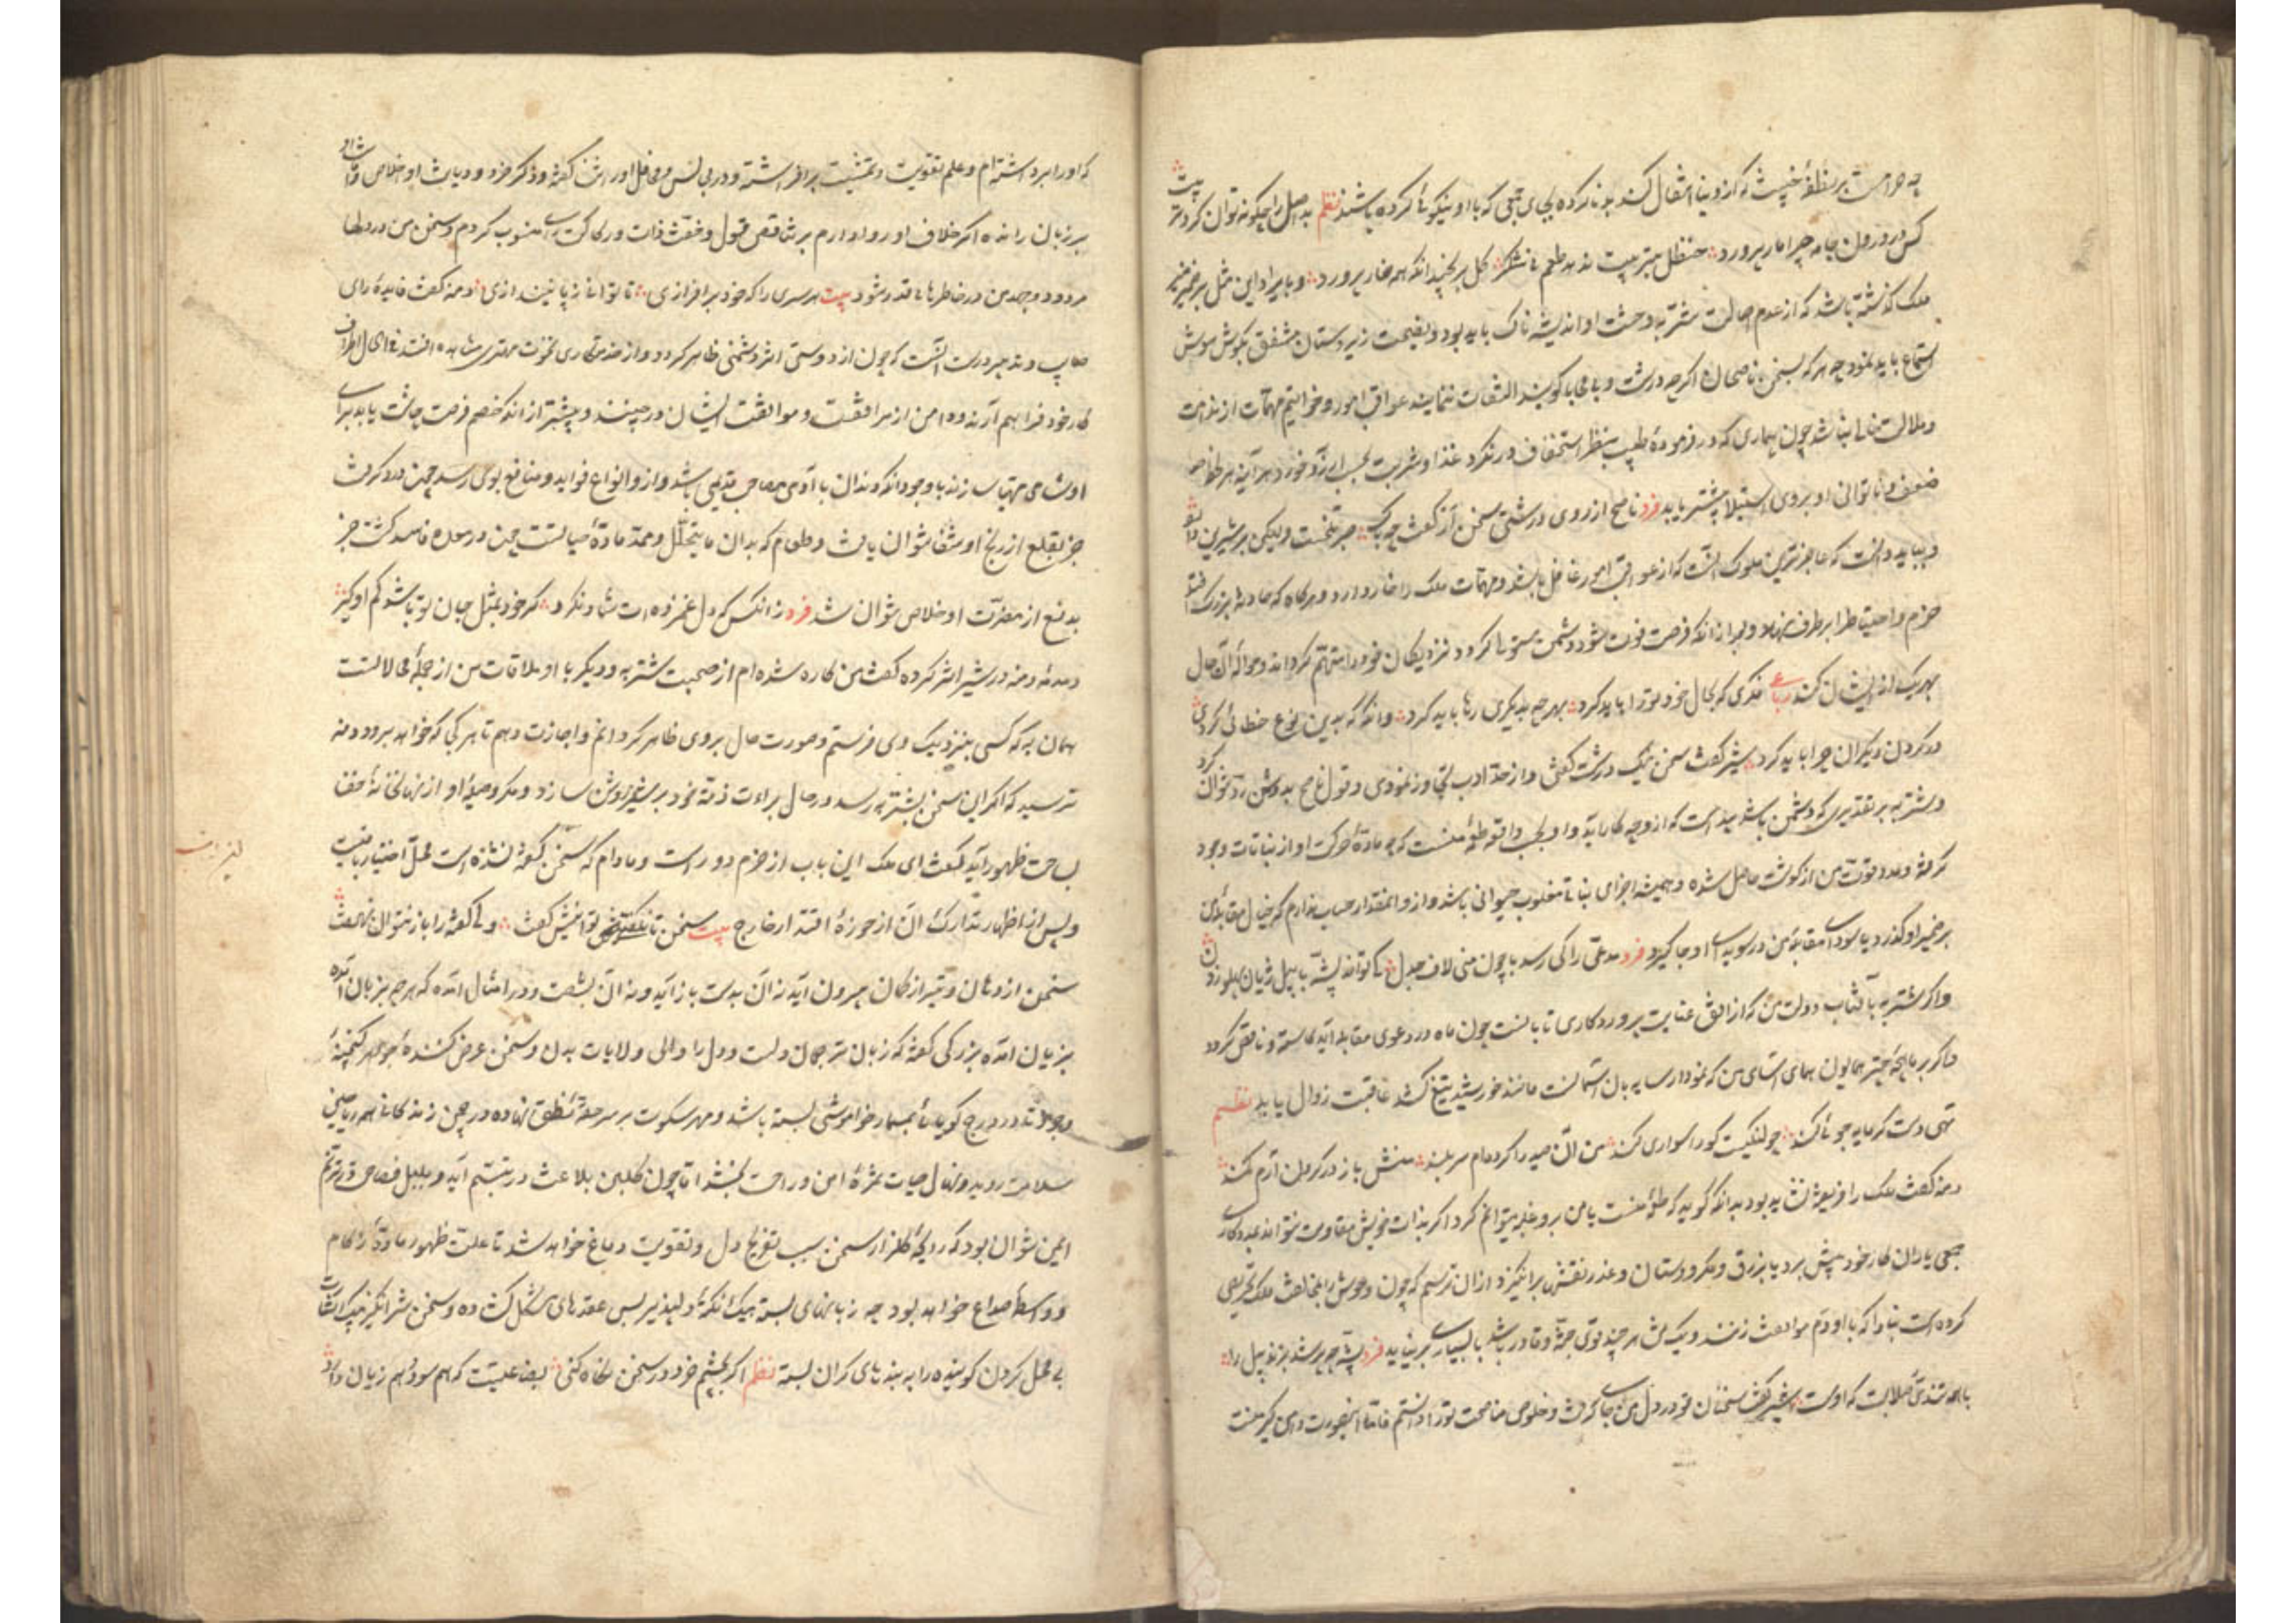 چه حرامست بر نطفهٔ خبیث که از دنیا انتقال کند بد ناکرده بجای جمعی که با او نیکوئی کرده باشند نظم بد اصل را چگونه توان کرد تربیت
کس در درون جامه چرا مار پرورد حنظل بتربیت ندهد طعم نیشکر گل برنچیند آنکه همه خار پرورد و با یراد این مثل بر ضمیر منیر
ملک گذشته باشد که از عدم اصالت شتربه و حشت او اندیشه ناک باید بود و نصیحت زیردستان مشفق بگوش هوش
استماع باید نمود چه هر که بسخن ناصحان اگرچه درشت و بی محابا گویند التفات ننماید عواقب امور و خواتیم مهمات از ندامت
و ملالت خالی نباشد چون بیماری که در فرمودهٔ طبیب بنظر استخفاف درنگرد غذا و شربت بحسب آرزو خورد هر آینه هر لحظه
ضعف و ناتوانی او بروی استیلا بیشتر یابد فرد ناصح از روی درشتی سخن ار گفت چه باک صبر تلخست ولیکن بر شیرین دارد
و بباید دانست که عاجزترین ملوک آنست که از عواقب امور غافل باشد و مهمات ملک را خوار دارد و هرگاه که حادثهٔ بزرگ افتد
حزم و احتیاط را برطرف نهد و بعد از آنکه فرصت فوت شود و دشمن مستولی گردد نزدیکان خود را متهم گرداند و حوالهٔ آن حال
بهریک از ایشان کند رباعی فکری که بحال خود تو را باید کرد بهر چه بدیگری رها باید کرد وانگه که بدین نوع خطائی کردی
در گردن دیگران چرا باید کرد شیر گفت سخن نیک درشت گفتی و از حد ادب تجاوز نمودی و قول ناصح بدرشتی رد نتوان کرد
و شتربه بر تقدیری که دشمن باشد پیداست که از وی چه کار آید و او بحسب واقع طعمهٔ منست که مادهٔ حرکت او از نباتات وجود
گرفته و مدد قوت من از گوشت حاصل شده و همیشه اجزای نباتی مغلوب حیوانی باشد و از او آنمقدار حساب ندارم که خیال مقابلهٔ من
بر ضمیر او گذرد یا سودای مقاتلهٔ من در سویدای او جا گیرد فرد مدعی را کی رسد با چون منی لاف جدل کی تواند پشه با پیل ژیان پهلو زدن
و اگر شتربه با آفتاب دولت من که از افق عنایت پروردگاری تابانست چون ماه در دعوی مقابله آید کاسته و ناقص گردد
و اگر بر مایچهٔ چتر همایون همای آسای من که نمودار سایه بان آسمانست مانند خورشید تیغ کشد عاقبت زوال یابد نظم
تهی دست گرمایه جوئی کند چو لنگیست کو راهواری کند من آن صید را کرده ام سربلند منش باز در گردن آرم کمند
دمنه گفت ملک را فریفته نشاید بود بدانکه گوید که طعمهٔ منست یا من برو غلبه میتوانم کرد اگر بذات خویش مقاومت نتواند بمددکاری
جمعی یاران کار خود پیش برد یا بزرق و مکر و دستان و غدر نقشی برانگیزد ازان ترسم که چون وحوش را بمخالفت ملک تحریص
کرده است مبادا که با او دم موافقت زنند و یک تن هر چند قوی جثه و قادر باشد با بسیاری برنیاید فرد پشه چو پر شد بزند پیل را
با همه تندی و صلابت که اوست شیر گفت سخنان تو در دل من جای گرفت و خلوص مناصحت تو را دانستم فاما اینصورت دامن گیر منست
که او را برداشته ام و علم تقویت و تمشیت برافراشته و در مجالس و محافل او را ثنا گفته و ذکر خرد و دیانت و اخلاص و امانت او
بر زبان رانده اگر خلاف او روا دارم بتناقض قول و خفت ذات و رکاکت رای منسوب گردم و سخن من در دلها
مردود و عهد من در خاطرها بی قدر شود بیت هر سری را که خود برافرازی تا توانی ز پا نیندازی دمنه گفت فایدهٔ رای
صایب و تدبیر درست آنست که چون از دوستی اثر دشمنی ظاهر گردد و از خدمتکاری نخوت مهتری مشاهده افتد فی الحال اطراف
کار خود فراهم آرند و دامن از مرافقت و موافقت ایشان درچینند و پیشتر از آنکه خصم فرصت چاشت یابد برای
او شامی مهیا سازند با وجود آنکه دندان با آدمی مصاحب قدیمی باشد و از او انواع فواید و منافع بوی رسد چون درد گرفت
جز بقلع از رنج او شفا نتوان یافت و طعام که بدل ما یتحلل و ممد مادهٔ حیاتست چون در معده فاسد گشت جز
بدفع از مضرت او خلاص نتوان شد فرد زانکس که دل غمزده ات شاد نگردد گر خود بمثل جان تو باشد کم او گیر
دمدمهٔ دمنه در شیر اثر کرده گفت من کاره شده ام از صحبت شتربه و دیگر با او ملاقات من از جملهٔ محالاتست
همان به که کسی بنزدیک وی فرستم و صورت حال بروی ظاهر گردانم و اجازت دهم تا هر کجا که خواهد برود دمنه
ترسید که اگر این سخن بشتربه رسد در حال براءت ذمهٔ خود بر شیر روشن سازد و مکر و حیلهٔ او از نهانخانهٔ خفا
بساحت ظهور آید گفت ای ملک این باب از حزم دور است و مادام که سخن گفته نشده است محل اختیار باقیست
و پس از اظهار تدارک آن از حوزهٔ اقتدار خارج بیت سخن تا نگفتی توانیش گفت ولی گفته را باز نتوان نهفت
سخن از دهان و تیر از کمان بیرون آید نه آن بدست باز آید و نه آن بشست و در امثال آمده که هر چه بزبان آمد
بزیان آمد بزرگی گفته که زبان ترجمان دلست و دل را والی ولایات بدن و سخن عرض کنندهٔ جواهر گنجینهٔ
وجود تا در درج گویائی بمسمار خواموشی بسته باشد و مهر سکوت بر سر حقهٔ نطق نهاده در چمن زندگانی همه ریاحین
سلامت روید و نهال حیات ثمرهٔ امن و راحت بخشد اما چون گلبن بلاغت در تبسم آید و بلبل فصاحت در ترنم
ایمن نتوان بود که رایحهٔ گلزار سخن سبب تفریح دل و تقویت دماغ خواهد شد تا علت ظهور مادهٔ زکام
و واسطهٔ صداع خواهد بود چه زبانهای بسته بیک نکتهٔ دلپذیر بس عقدهای مشکل گشاده و سخن شرانگیز بیک التفات
بی محل گردن گوینده را به بندهای گران بسته نظم اگر بچشم خرد در سخن نگاه کنی بضاعتیست که هم سود و هم زیان دارد